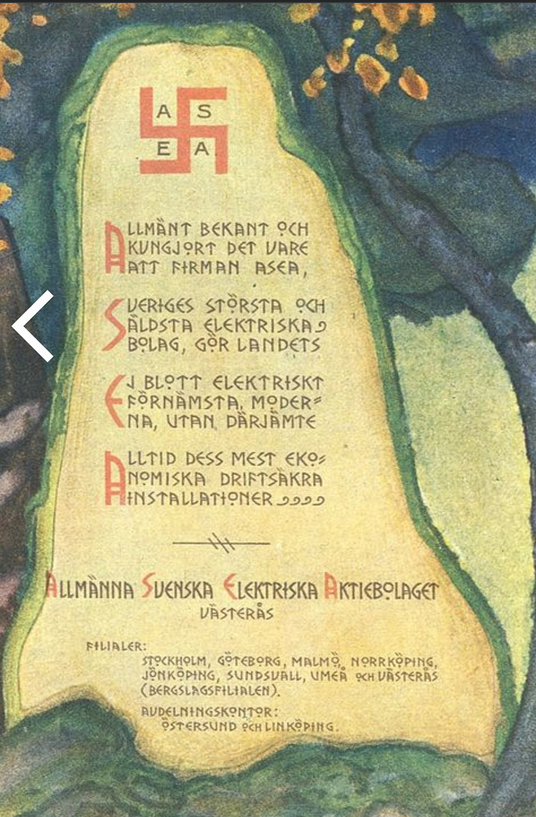 A S
E A
ALLMÄNT BEKANT OCH
KUNGJORT DET VARE
ATT FIRMAN ASEA,
SVERIGES STÖRSTA OCH
ÄLDSTA ELEKTRISKA
BOLAG, GÖR LANDETS
EJ BLOTT ELEKTRISKT
FÖRNÄMSTA, MODER=
NA, UTAN DÄRJÄMTE
ALLTID DESS MEST EKO=
NOMISKA DRIFTSÄKRA
INSTALLATIONER
ALLMÄNNA SVENSKA ELEKTRISKA AKTIEBOLAGET
VÄSTERÅS
FILIALER:
STOCKHOLM, GÖTEBORG, MALMÖ, NORRKÖPING,
JÖNKÖPING, SUNDSVALL, UMEÅ OCH VÄSTERÅS
(BERGSLAGSFILIALEN).
AVDELNINGSKONTOR:
ÖSTERSUND OCH LINKÖPING.